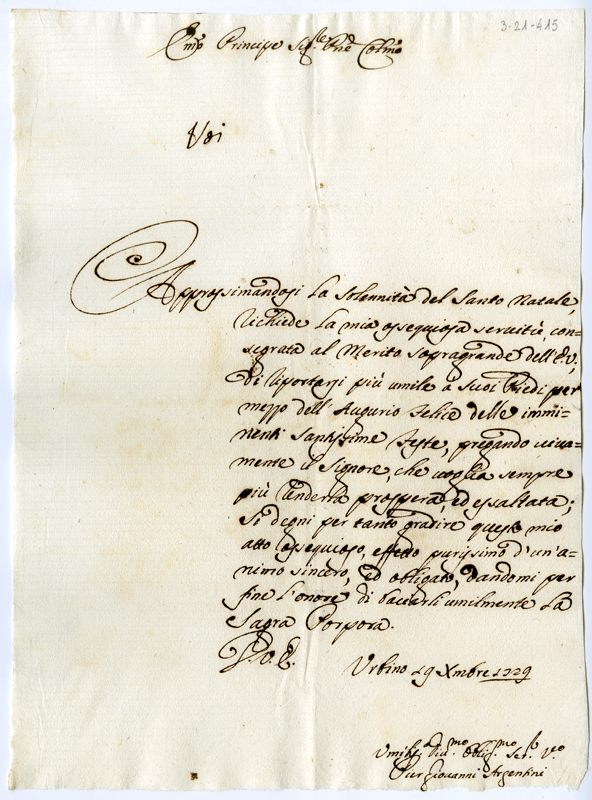 3-21-415
Emo Principe Sig.re Pne Colmo
Approssimandosi la Solennità del Santo Natale,
richiede la mia ossequiosa servitù, con=
segrata al Merito sopragrande dell'E.V.,
di riportarsi più umile a suoi Piedi per
mezzo dell'Augurio felice delle immi=
nenti Santissime feste, pregando viva=
mente il Signore, che voglia sempre
più renderla prosperà, ed essaltata;
Si degni per tanto gradire questo mio
atto ossequioso, effetto purissimo d'un'a=
nimo sincero, ed obligato, dandomi per
fine l'onore di bacciarli umilmente La
Sagra Porpora.
D.V.E.
Urbino 19 Xmbre 1729
Umil.o Div.mo Oblig.mo Ser. V.o
Pier Giovanni Argentini